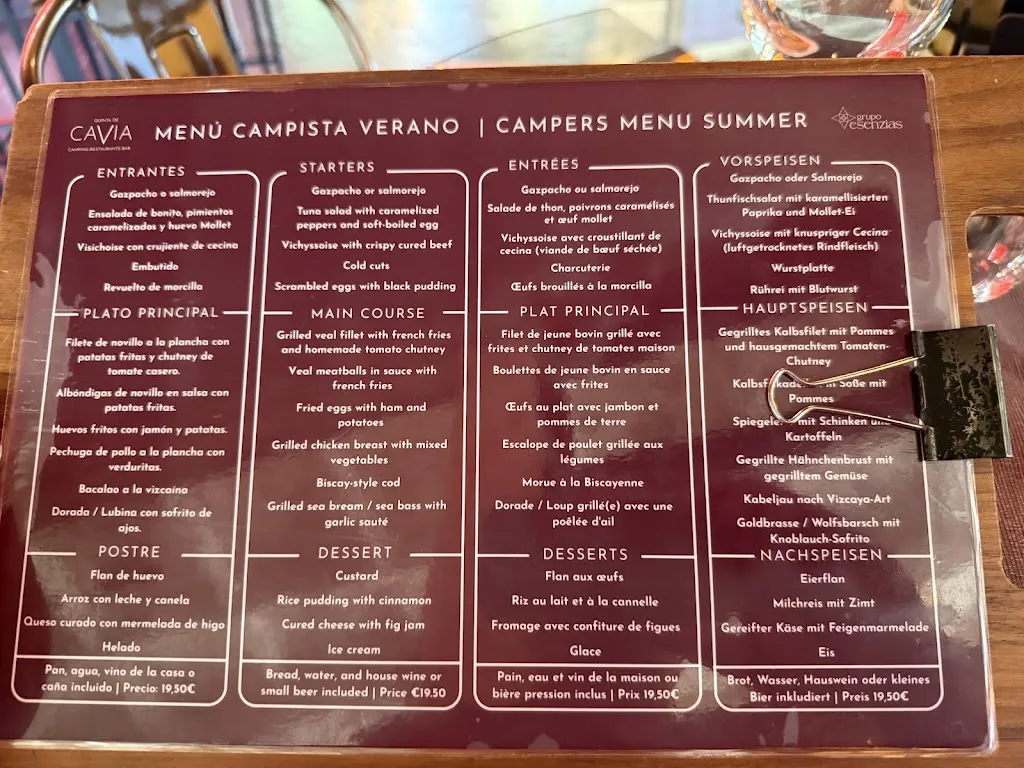 QUINTA DE
CAVIA
CAMPING·RESTAURANTE·BAR
MENÚ CAMPISTA VERANO | CAMPERS MENU SUMMER
grupo
esenzias
ENTRANTES
Gazpacho o salmorejo
Ensalada de bonito, pimientos
caramelizados y huevo Mollet
Visichoise con crujiente de cecina
Embutido
Revuelto de morcilla
PLATO PRINCIPAL
Filete de novillo a la plancha con
patatas fritas y chutney de
tomate casero.
Albóndigas de novillo en salsa con
patatas fritas.
Huevos fritos con jamón y patatas.
Pechuga de pollo a la plancha con
verduritas.
Bacalao a la vizcaína
Dorada / Lubina con sofrito de
ajos.
POSTRE
Flan de huevo
Arroz con leche y canela
Queso curado con mermelada de higo
Helado
Pan, agua, vino de la casa o
caña incluido | Precio: 19,50€
STARTERS
Gazpacho or salmorejo
Tuna salad with caramelized
peppers and soft-boiled egg
Vichyssoise with crispy cured beef
Cold cuts
Scrambled eggs with black pudding
MAIN COURSE
Grilled veal fillet with french fries
and homemade tomato chutney
Veal meatballs in sauce with
french fries
Fried eggs with ham and
potatoes
Grilled chicken breast with mixed
vegetables
Biscay-style cod
Grilled sea bream / sea bass with
garlic sauté
DESSERT
Custard
Rice pudding with cinnamon
Cured cheese with fig jam
Ice cream
Bread, water, and house wine or
small beer included | Price €19.50
ENTRÉES
Gazpacho ou salmorejo
Salade de thon, poivrons caramélisés
et œuf mollet
Vichyssoise avec croustillant de
cecina (viande de bœuf séchée)
Charcuterie
Œufs brouillés à la morcilla
PLAT PRINCIPAL
Filet de jeune bovin grillé avec
frites et chutney de tomates maison
Boulettes de jeune bovin en sauce
avec frites
Œufs au plat avec jambon et
pommes de terre
Escalope de poulet grillée aux
légumes
Morue à la Biscayenne
Dorade / Loup grillé(e) avec une
poêlée d'ail
DESSERTS
Flan aux œufs
Riz au lait et à la cannelle
Fromage avec confiture de figues
Glace
Pain, eau et vin de la maison ou
bière pression inclus | Prix 19,50€
VORSPEISEN
Gazpacho oder Salmorejo
Thunfischsalat mit karamellisierten
Paprika und Mollet-Ei
Vichyssoise mit knuspriger Cecina
(luftgetrocknetes Rindfleisch)
Wurstplatte
Rührei mit Blutwurst
HAUPTSPEISEN
Gegrilltes Kalbsfilet mit Pommes
und hausgemachtem Tomaten-
Chutney
Soße mit
Pommes
mit Schinken und
Kartoffeln
Gegrillte Hähnchenbrust mit
gegrilltem Gemüse
Kabeljau nach Vizcaya-Art
Goldbrasse / Wolfsbarsch mit
Knoblauch-Sofrito
NACHSPEISEN
Eierflan
Milchreis mit Zimt
Gereifter Käse mit Feigenmarmelade
Eis
Brot, Wasser, Hauswein oder kleines
Bier inkludiert | Preis 19,50€